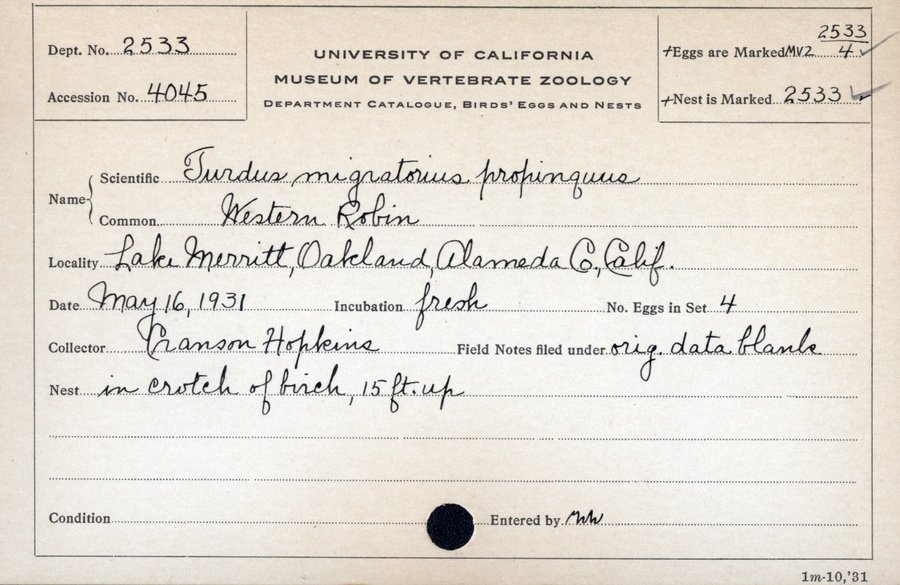 Dept. No. 2533
Accession No. 4045
UNIVERSITY OF CALIFORNIA
MUSEUM OF VERTEBRATE ZOOLOGY
DEPARTMENT CATALOGUE, BIRDS' EGGS AND NESTS
+Eggs are Marked MVZ 2533/4 ✓
+Nest is Marked 2533 ✓
Name { Scientific Turdus migratorius propinquus
Common Western Robin
Locality Lake Merritt, Oakland, Alameda Co, Calif.
Date May 16, 1931 Incubation fresh No. Eggs in Set 4
Collector Cranson Hopkins Field Notes filed under orig. data blank
Nest in crotch of birch, 15 ft. up
Condition Entered by
1m-10,'31